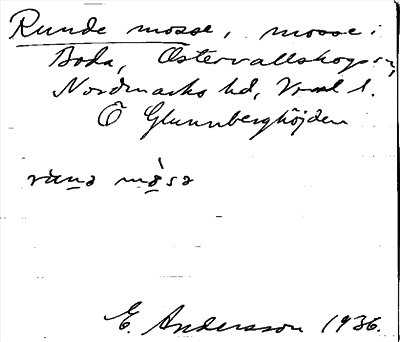 Runde mosse, mosse i
Boda, Östervallskogs sn,
Nordmarks hd, Vrml l.
Ö Glunnberghöjden
runə mosə
E. Andersson 1936.